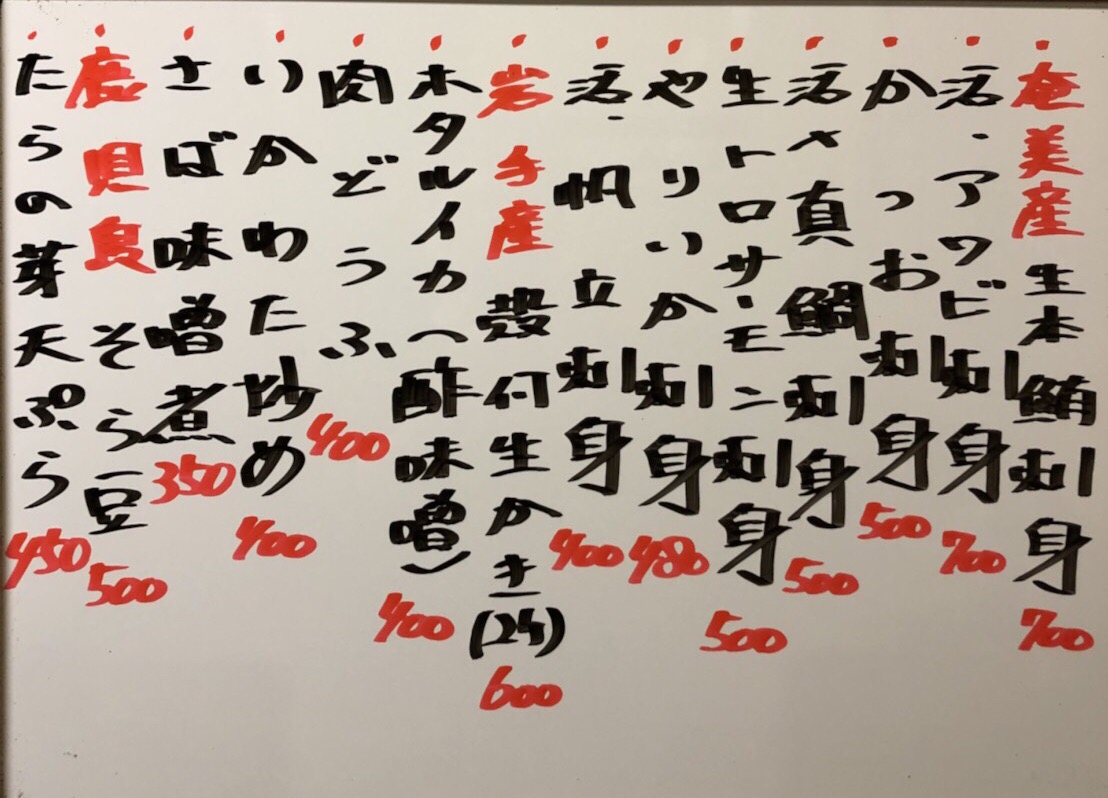 奄美産生本鮪刺身 700
活・アワビ刺身 700
かつお刺身 500
活〆真鯛刺身 500
生トロサーモン刺身 500
やりいか刺身 480
活・帆立刺身 400
岩手産殻付生かき(2ケ) 600
ホタルイカ(酢味噌) 400
肉どうふ 400
いかわた炒め 400
さば味噌煮 350
鹿児島そら豆 500
たらの芽天ぷら 450